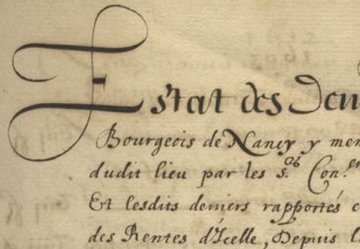 Estat des Den
Bourgeois de Nancy y men
dudit lieu par les s.rs Con.en
Et lesdits deniers rapportés e
des Rentes d'Icelle, Depuis